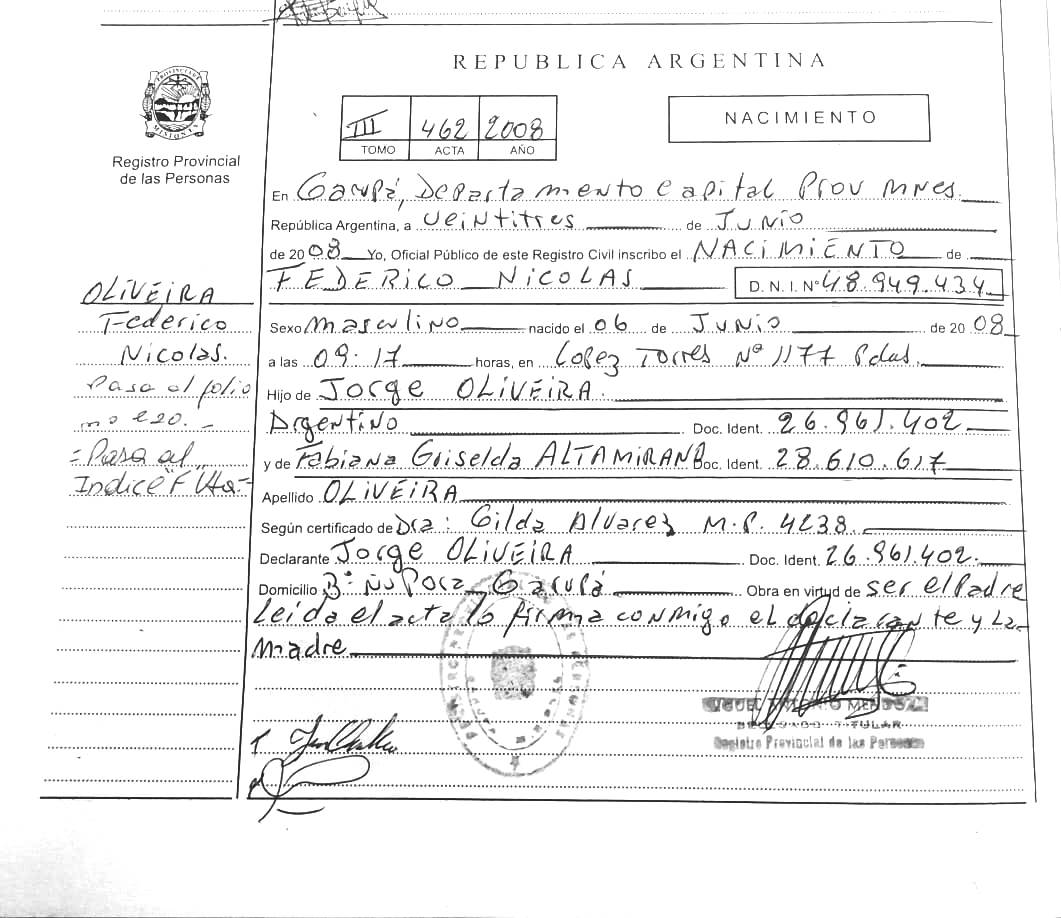 REPUBLICA ARGENTINA
PROVINCIA DE MISIONES
Registro Provincial
de las Personas
III 462 2008
TOMO ACTA AÑO
NACIMIENTO
En Garupá, Departamento Capital Prov Mnes.
República Argentina, a veintitres de Junio
de 2008 Yo, Oficial Público de este Registro Civil inscribo el NACIMIENTO de
FEDERICO NICOLAS D. N. I. Nº 48.949.434
Sexo masculino nacido el 06 de Junio de 2008
a las 09.17 horas, en Lopez Torres Nº 1177 Pdas.
Hijo de Jorge OLIVEIRA.
Argentino Doc. Ident. 26.961.402
y de Fabiana Griselda ALTAMIRANO Doc. Ident. 28.610.617
Apellido OLIVEIRA
Según certificado de Dra: Gilda Alvarez M.P. 4238.
Declarante Jorge OLIVEIRA Doc. Ident. 26.961.402.
Domicilio Bº Ñu Pora Garupá Obra en virtud de ser el Padre
Leida el acta lo firma conmigo el declarante y La
madre
OLIVEIRA
Federico
Nicolas.
Pasa al folio
nº 220.
=Pasa al
Indice "F"
MIGUEL ANTONIO
DELEGADO TITULAR
Registro Provincial de las Personas